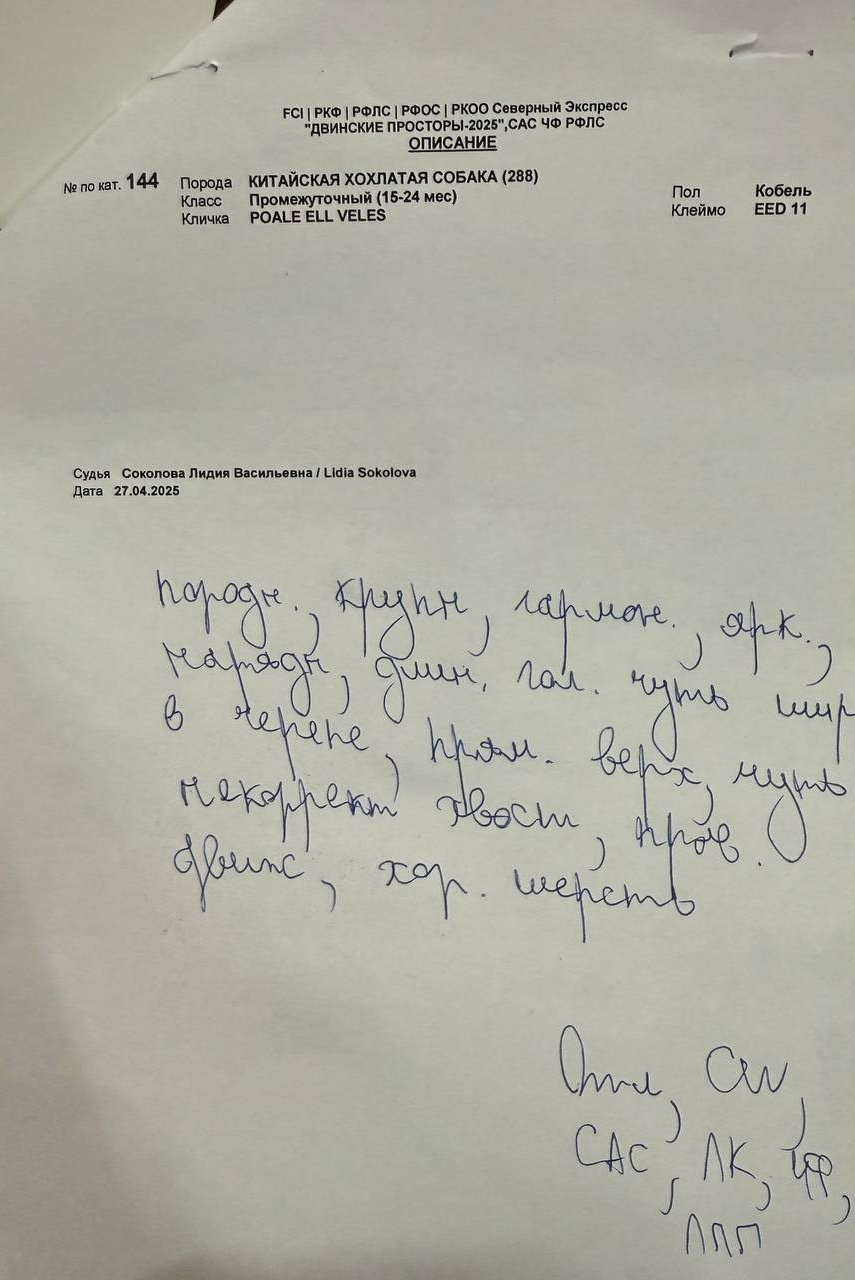 FCI | РКФ | РФЛС | РФОС | РКОО Северный Экспресс
"ДВИНСКИЕ ПРОСТОРЫ-2025",САС ЧФ РФЛС
ОПИСАНИЕ
№ по кат. 144 Порода КИТАЙСКАЯ ХОХЛАТАЯ СОБАКА (288)
Пол Кобель
Класс Промежуточный (15-24 мес)
Клеймо EED 11
Кличка POALE ELL VELES
Судья Соколова Лидия Васильевна / Lidia Sokolova
Дата 27.04.2025
породн., крупн, гармон., ярк.,
нарядн, длин. гол. чуть шир
в черепе, прям. верх, чуть
некоррект хвост, прав.
движ, хор. шерсть
Отл, CW,
САС, ЛК, ЧФ,
ЛПП